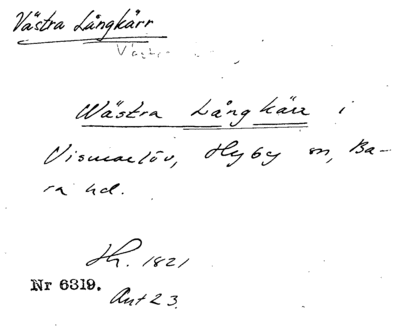 Västra Långkärr
Wästra Långkärr i
Vismarlöv, Hyby sn, Ba-
ra hd.
Hh. 1821
Nr 6319.
Ant 23.